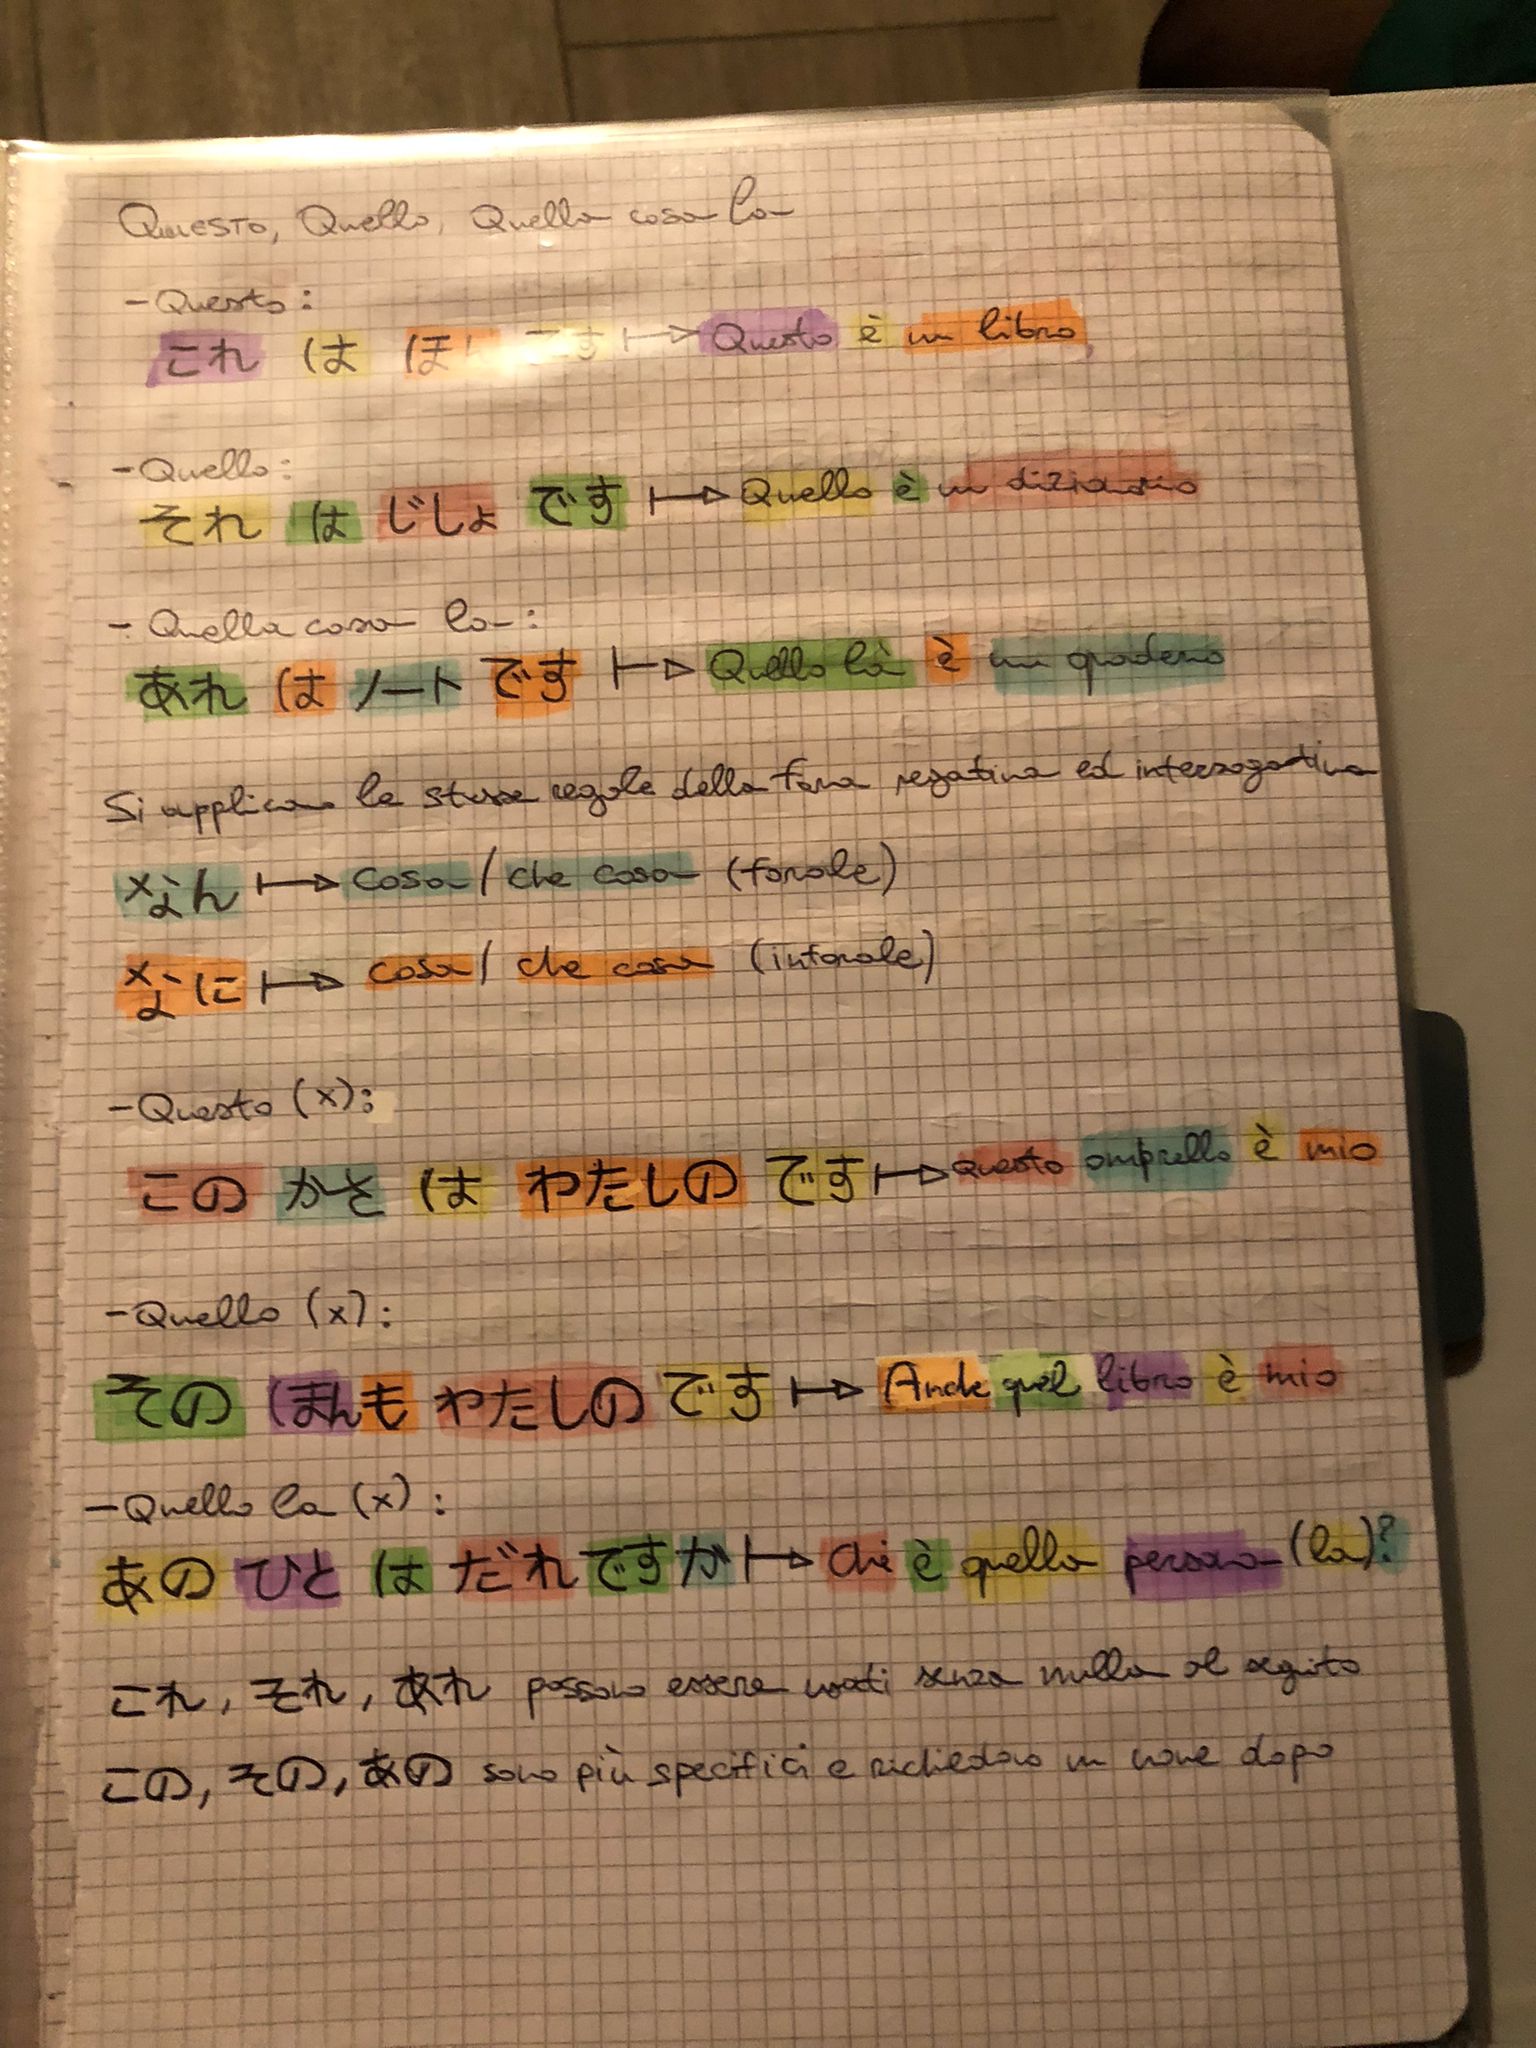 Questo, Quello, Quella cosa la
- Questo:
これ は ほん です ↦ Questo è un libro
- Quello:
それ は じしょ です ↦ Quello è un dizionario
- Quella cosa la:
あれ は ノート です ↦ Quello là è un quaderno
Si applicano le stesse regole della forma negativa ed interrogativa
なん ↦ cosa / che cosa (formale)
なに ↦ cosa / che cosa (informale)
- Questo (x):
この かさ は わたしの です ↦ questo ombrello è mio
- Quello (x):
その ほんも わたしの です ↦ Anche quel libro è mio
- Quello la (x):
あの ひと は だれ ですか ↦ Chi è quella persona (la)?
これ, それ, あれ possono essere usati senza nulla al seguito
この, その, あの sono più specifici e richiedono un nome dopo